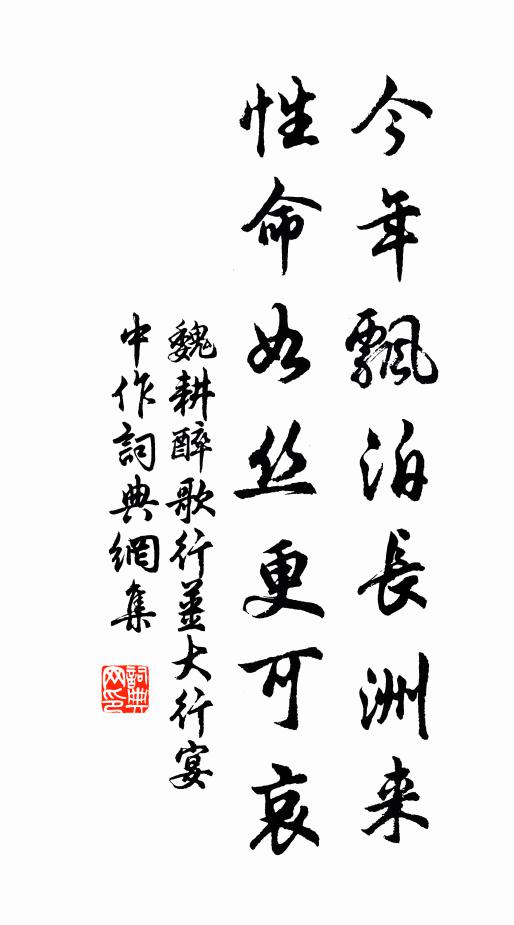 今年飄泊長洲来
性命如丝更可哀
魏耕醉歌行薑大行宴
中作詞典網集
詞典
网印